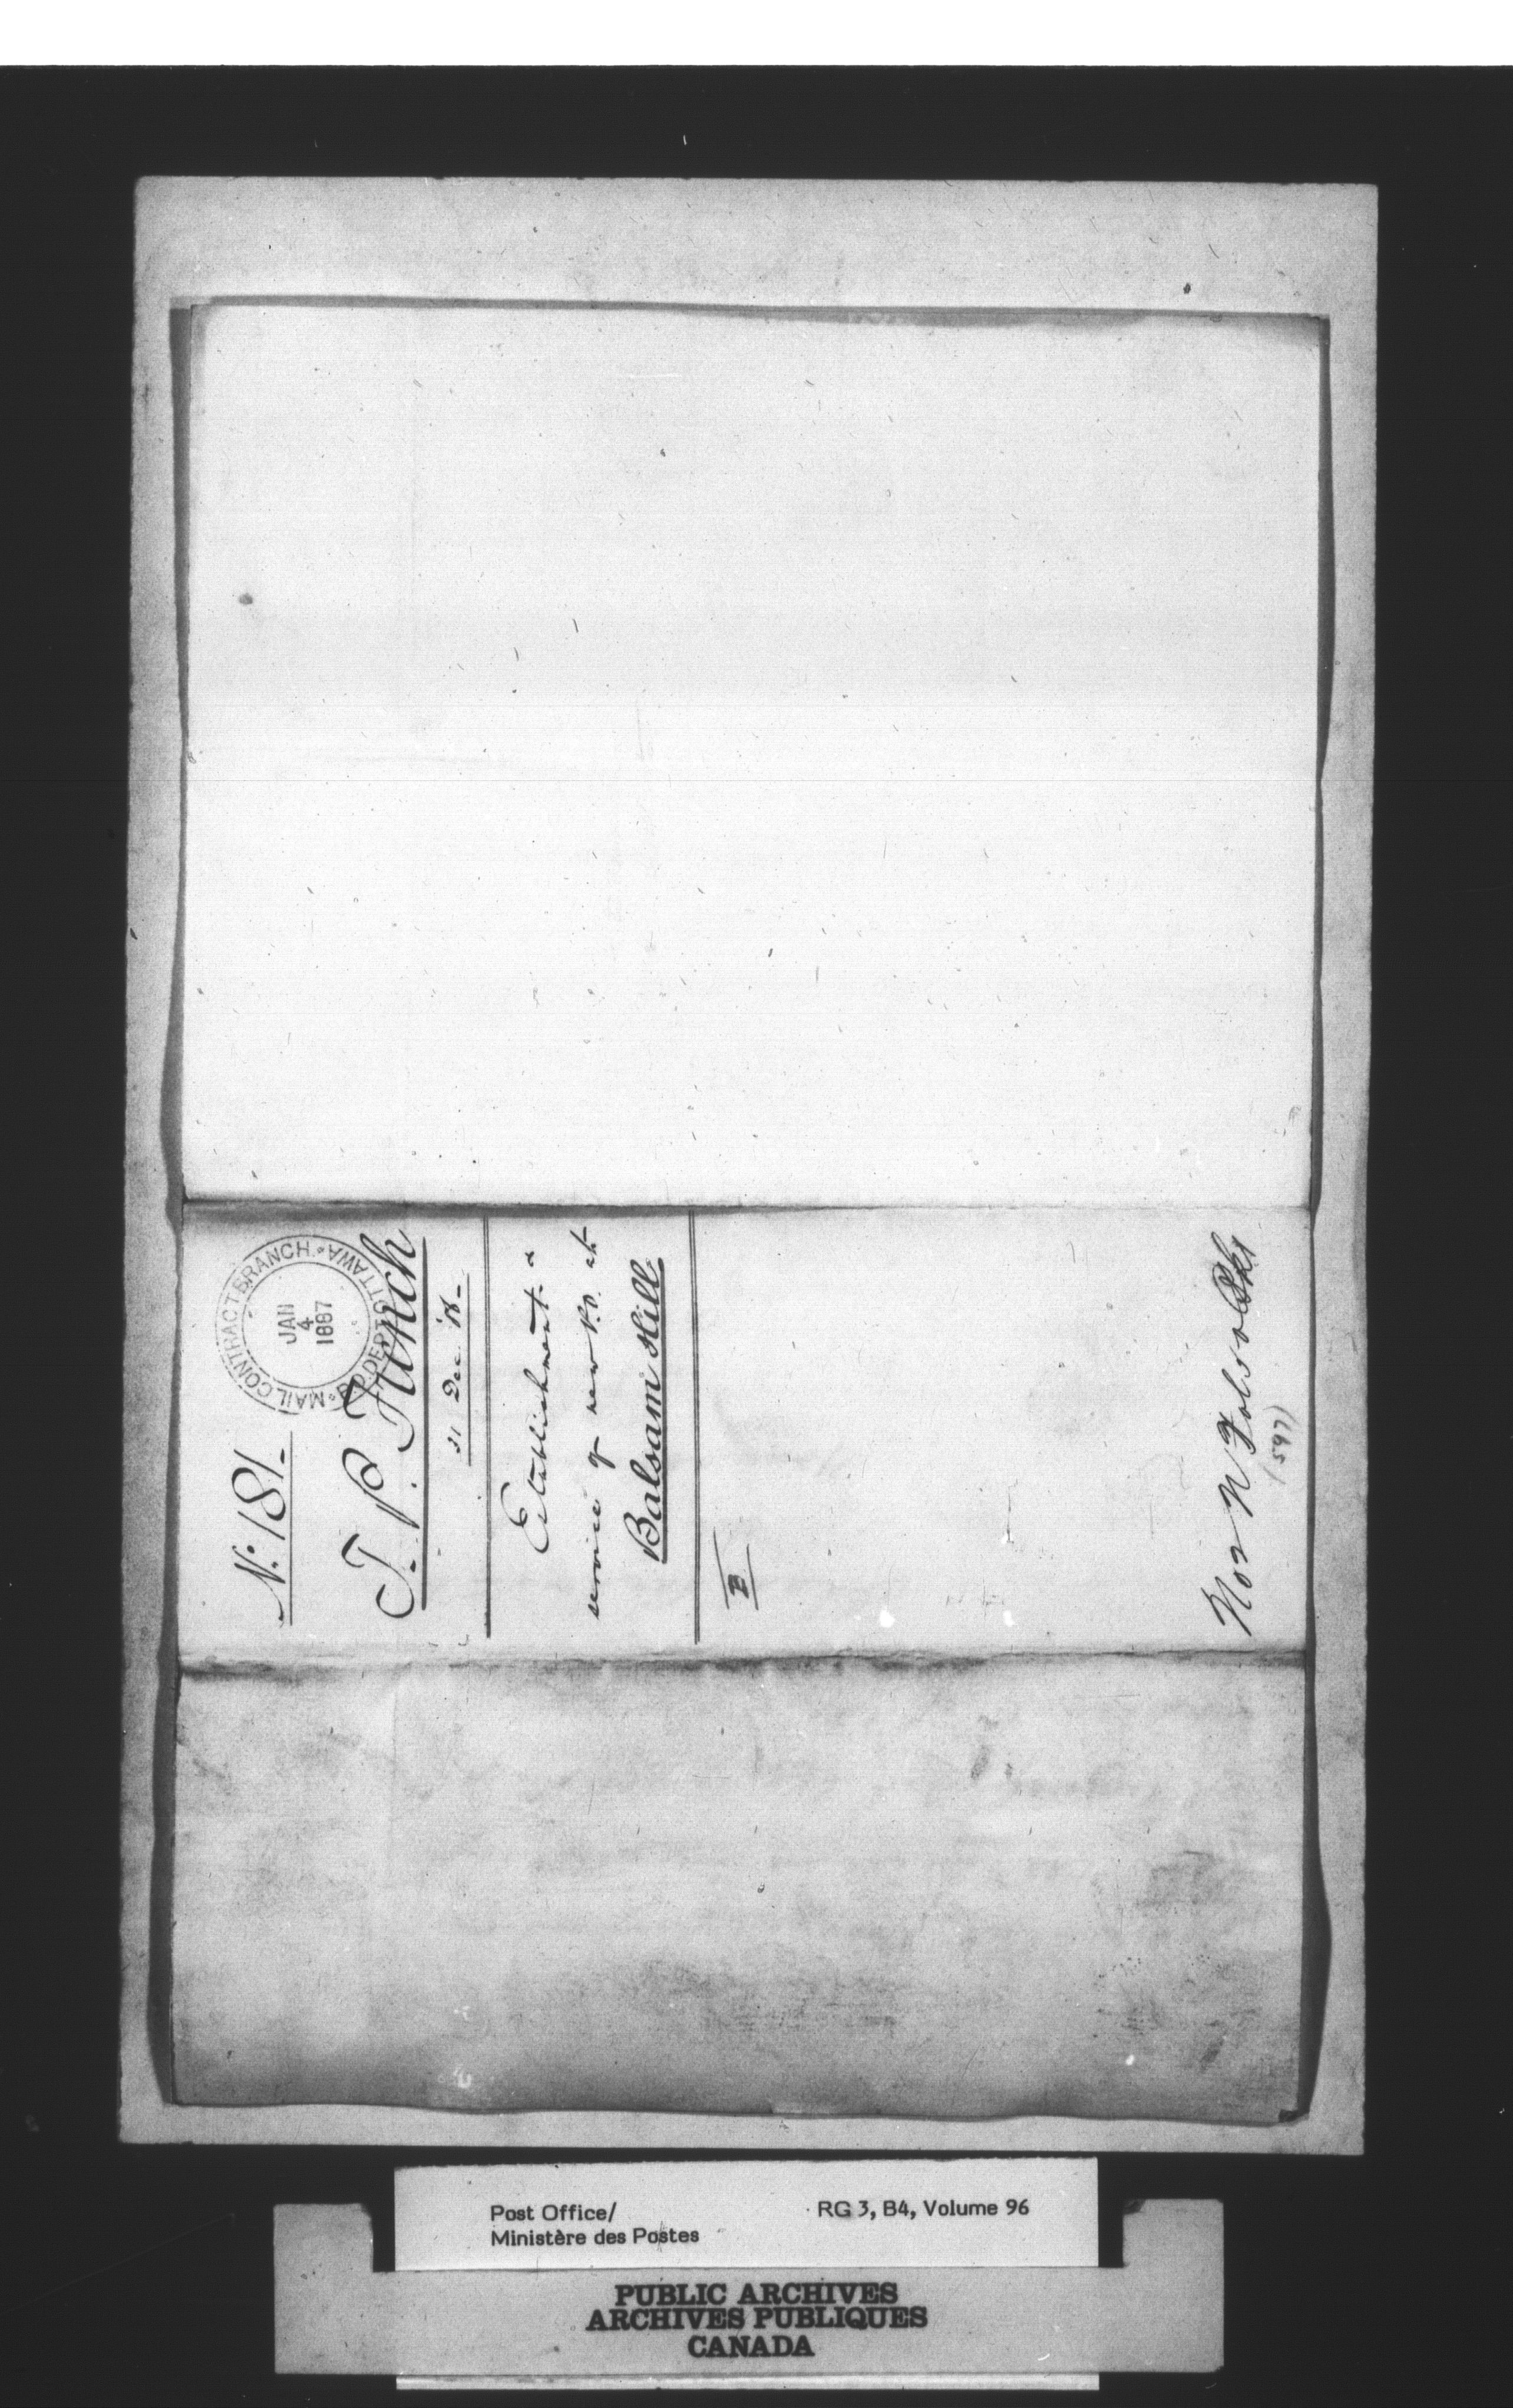 MAIL CONTRACT BRANCH. P.O. DEPT OTTAWA
JAN
4
1887
No. 181.
T. P. French
31 Dec.
Establishment &
service of new P.O. at
Balsam Hill
B
(597)
Post Office/
Ministère des Postes
RG 3, B4, Volume 96
PUBLIC ARCHIVES
ARCHIVES PUBLIQUES
CANADA